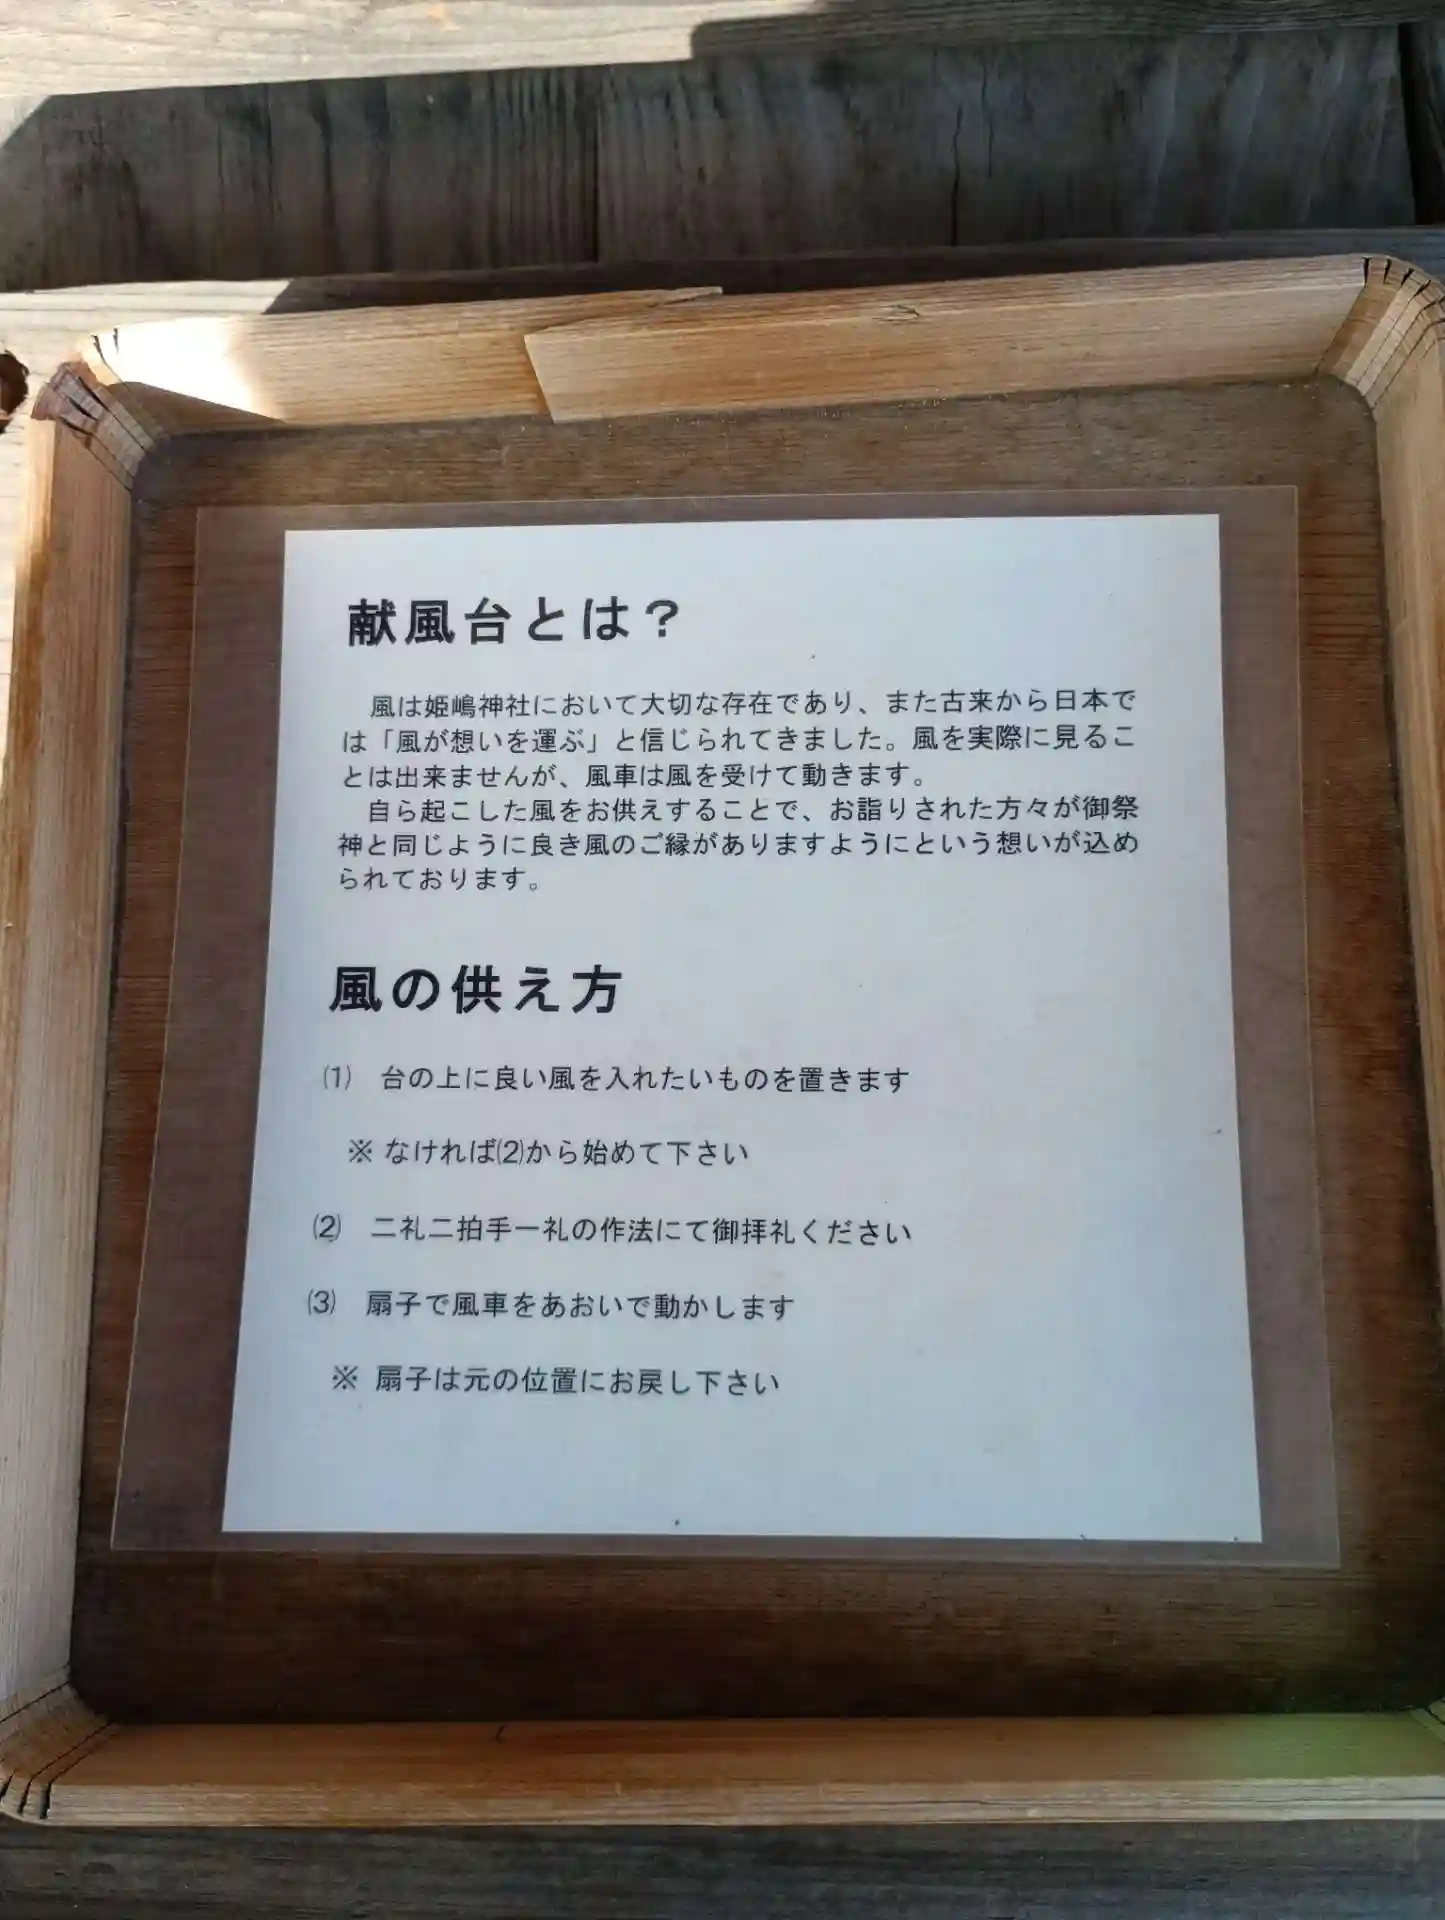 献風台とは？
風は姫嶋神社において大切な存在であり、また古来から日本で
は「風が想いを運ぶ」と信じられてきました。風を実際に見るこ
とは出来ませんが、風車は風を受けて動きます。
自ら起こした風をお供えすることで、お詣りされた方々が御祭
神と同じように良き風のご縁がありますようにという想いが込め
られております。
風の供え方
⑴ 台の上に良い風を入れたいものを置きます
※ なければ⑵から始めて下さい
⑵ 二礼二拍手一礼の作法にて御拝礼ください
⑶ 扇子で風車をあおいで動かします
※ 扇子は元の位置にお戻し下さい